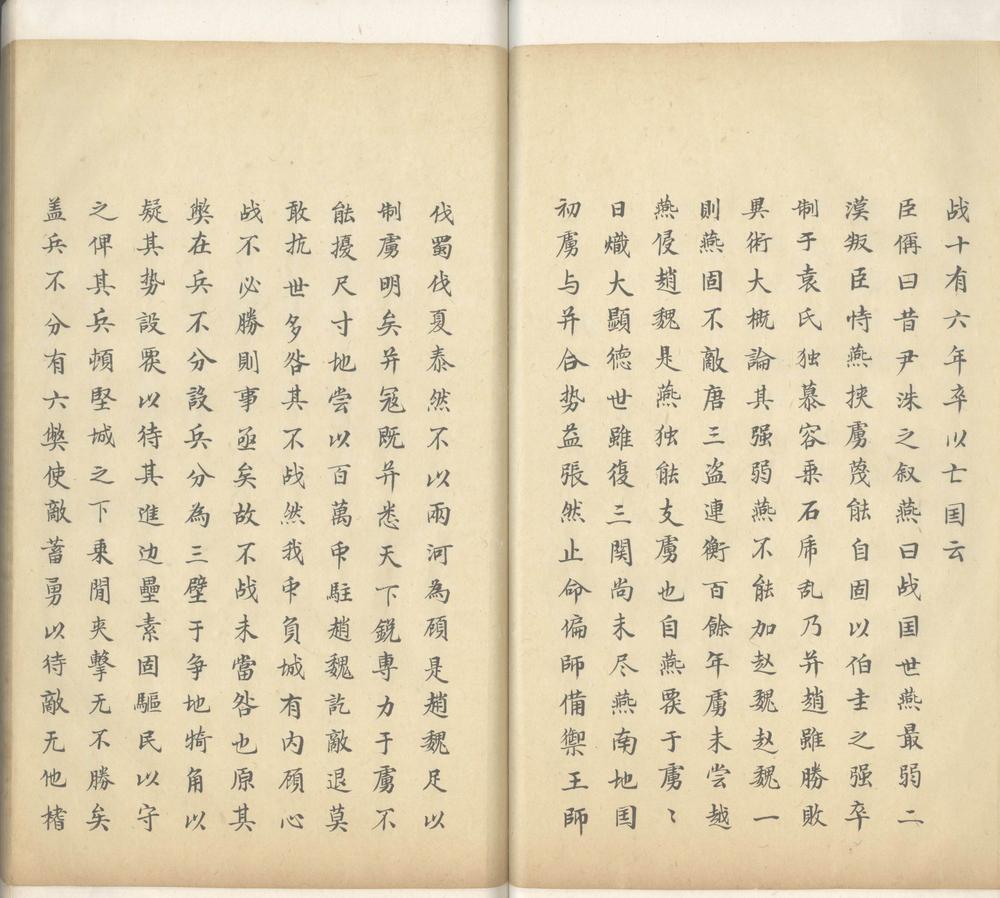 战十有六年卒以亡囯云
臣偁曰昔尹洙之叙燕曰战囯世燕最弱二
漠叛臣恃燕挟虏蔑能自固以伯圭之强卒
制于袁氏独慕容乗石乕乱乃并趙雖勝敗
異術大概論其强弱燕不能加赵魏赵魏一
則燕固不敵唐三盗連衡百餘年虏未尝越
燕侵趙魏是燕独能支虏也自燕覂于虏〻
日熾大顯徳世雖復三関尚未尽燕南地囯
初虏与并合势益張然止命偏師備禦王師
伐蜀伐夏泰然不以兩河為頋是趙魏足以
制虏明矣并冦既并悉天下鋭專力于虏不
能擾尺寸地尝以百萬㠯駐趙魏訖敵退莫
敢抗世多咎其不战然我㠯負城有内頋心
战不必勝則事亟矣故不战未當咎也原其
獘在兵不分設兵分為三壁于争地犄角以
疑其势設覂以待其進边壘素固驅民以守
之俾其兵頓堅城之下乗閒夹擊无不勝矣
盖兵不分有六獘使敵蓄勇以待敵无他楮